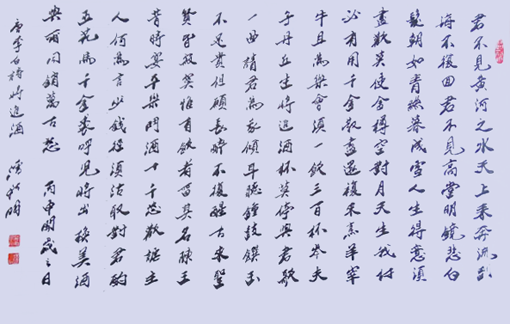 君不見黄河之水天上来奔流到
海不復回君不見高堂明鏡悲白
髮朝如青絲暮成雪人生得意須
盡歡莫使金樽空對月天生我材
必有用千金散盡還復来烹羊宰
牛且為樂會須一飲三百杯岑夫
子丹丘生將進酒杯莫停與君歌
一曲請君為我傾耳聽鐘鼓饌玉
不足貴但願長醉不復醒古来聖
賢皆寂寞惟有飲者留其名陳王
昔時宴平樂鬥酒十千恣歡謔主
人何為言少錢徑須沽取對君酌
五花馬千金裘呼兒將出換美酒
與爾同銷萬古愁 丙申開歲之日
唐李白詩將進酒